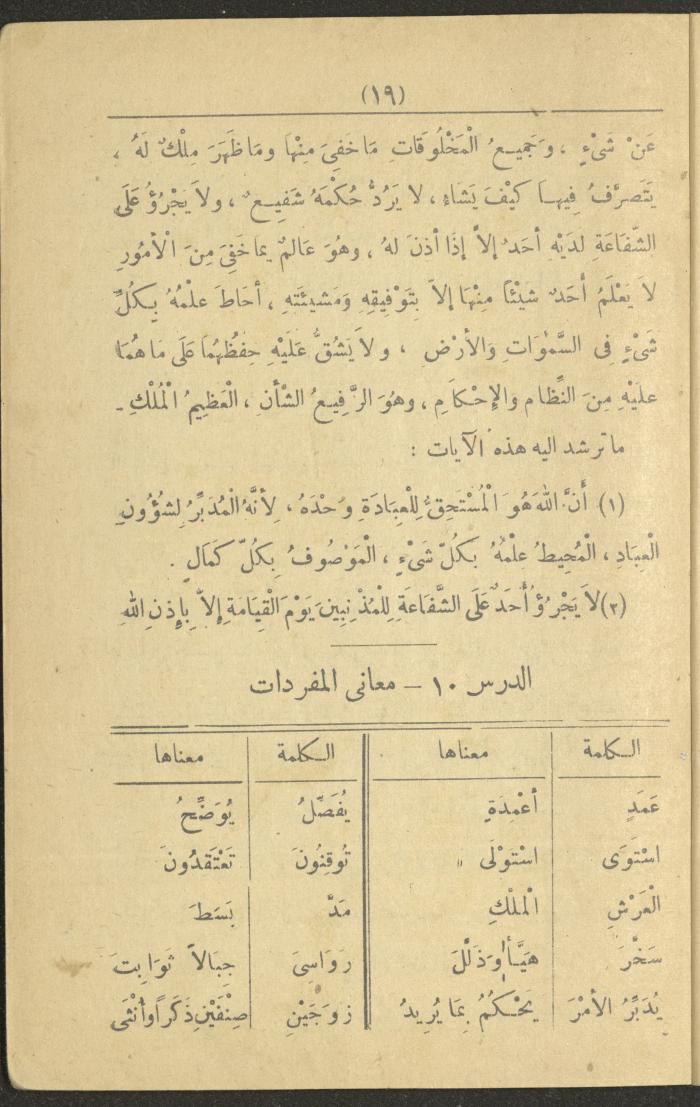 (١٩)
عَنْ شَىْءٍ ، وَجَمِيعُ الْمَخْلُوقَاتِ مَا خَفِىَ مِنْهَا ومَا ظَهَرَ مِلْكٌ لَهُ ،
يَتَصَرَّفُ فِيهَا كَيْفَ يَشَاءُ ، لا يَرُدُّ حُكْمَهُ شَفِيعٌ ، ولاَ يَجْرُؤُ عَلَى
الشَّفَاعَةِ لدَيْهِ أحَدٌ إلاَّ إذَا أذنَ لهُ ، وهُوَ عَالمٌ بما خَفِىَ مِنَ الْأمُورِ
لاَ يَعْلَمُ أحَدٌ شيْئاً مِنْهَا إلاَّ بِتَوْفِيقِهِ وَمَشيئَتهِ ، أحَاطَ عِلْمُهُ بِكُلِّ
شَىْءٍ فِى السَّمٰوَاتِ وَالأرْضِ ، ولاَ يَشُقُّ عَلَيْهِ حِفْظُهُمَا عَلَى مَاهُمَا
عليْهِ مِنَ النِّظَام والإِحْكَامِ ، وهُوَ الرَّفِيعُ الشَّأْنِ ، الْعَظِيمُ الْمُلْكِ .
ما ترشد اليه هذه الآيات :
(١) أَنَّ اللهَ هُوَ الْمُسْتَحِقُّ لِلْعِبَادَةِ وَحْدَهُ ، لِأنَّهُ الْمُدَبِّرُ لِشُؤُونِ
الْعِبَادِ ، الْمُحِيطُ عِلْمُهُ بِكُلِّ شَىْءٍ ، الْمَوْصُوفُ بِكُلِّ كَمَالٍ .
(٢) لاَ يَجْرُؤُ أَحَدٌ عَلَى الشَّفَاعَةِ لِلْمُذْنِبِينَ يَوْمَ الْقِيَامَةِ إلاَّ بِإِذنِ اللهِ
الدرس ١٠ – معانى المفردات
الكلمة معناها الكلمة معناها
عَمَدٍ أعْمِدَةٍ يُفَصِّلُ يُوَضِّحُ
اسْتَوَى اسْتوْلَى تُوقِنُونَ تَعْتَقِدُونَ
الْعَرْشِ الْملْكِ مَدَّ بَسَطَ
سَخَّرَ هَيَّأ وَذَلَّلَ رَوَاسِىَ جِبَالاً ثوَابِتَ
يُدَبِّرُ الأمْرَ يَحْكُمُ بِمَا يُرِيدُ زوْجَيْنِ صِنْفَيْنِ ذَكَراً وأُنْثَى